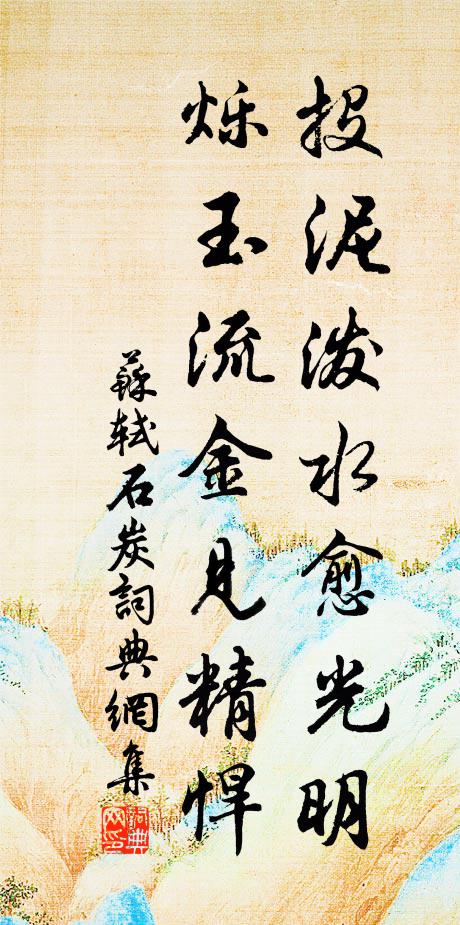 投泥泼水愈光明
烁玉流金见精悍
蘇轼石炭詞典網集
詞典網印